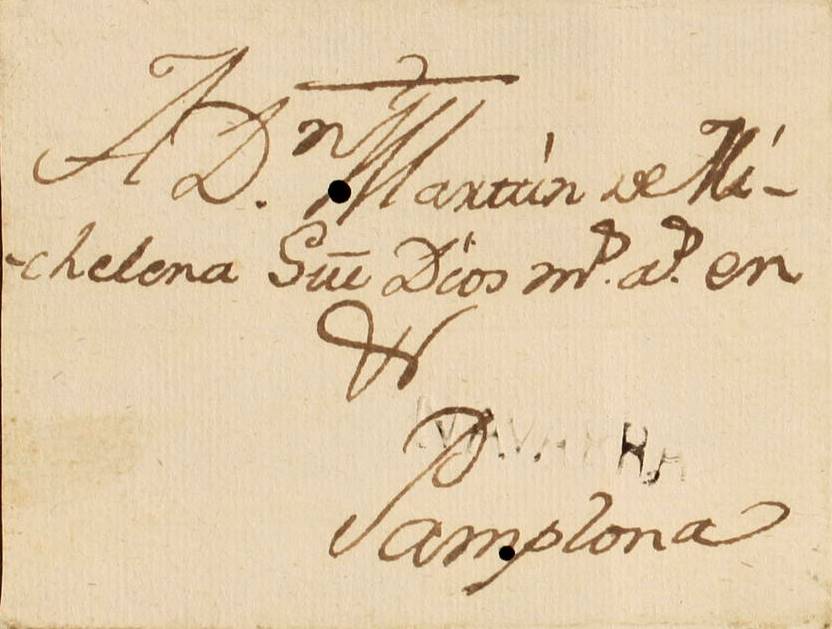 A D.n Martin de Mi-
-chelena Gūe Dios m.s a.s en
NAVARRA
Pamplona